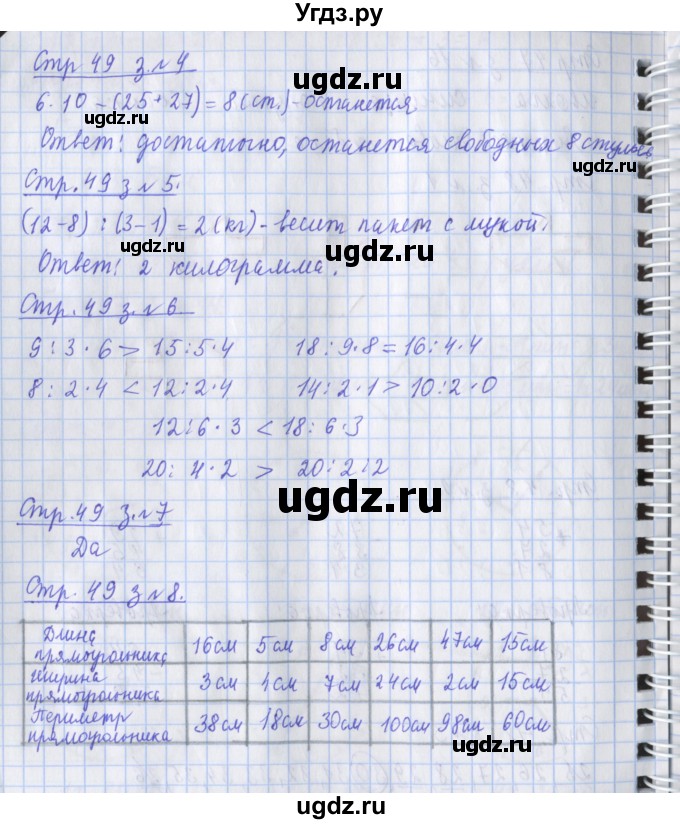 Угдз.ру
Стр 49 з.№4
ugdz.ru
6·10-(25+27)=8(ст.)-останется
ugdz.ru
Ответ: достаточно, останется свободных 8 стульев
ugdz.ru
Стр. 49 з №5.
(12-8):(3-1)=2(кг)-весит пакет с мукой.
ugdz.ru
Ответ: 2 килограмма.
ugdz.ru
Стр. 49 з.№6
9:3·6>15:5·4 18:9·8=16:4·4
8:2·4<12:2·4 14:2·1>10:2·0
ugdz.ru
12:6·3<18:6·3
20:4·2 > 20:2:2
ugdz.ru
Стр.49 з.№7
ugdz.ru
Да
Стр. 49 з №8.
ugdz.ru
Длина прямоугольника 16см 5см 8см 26см 47см 15см
Ширина прямоугольника 3см 4см 7см 24см 2см 15см
Периметр прямоугольника 38см 18см 30см 100см 98см 60см
ugdz.ru
ugdz.ru
ugdz.ru